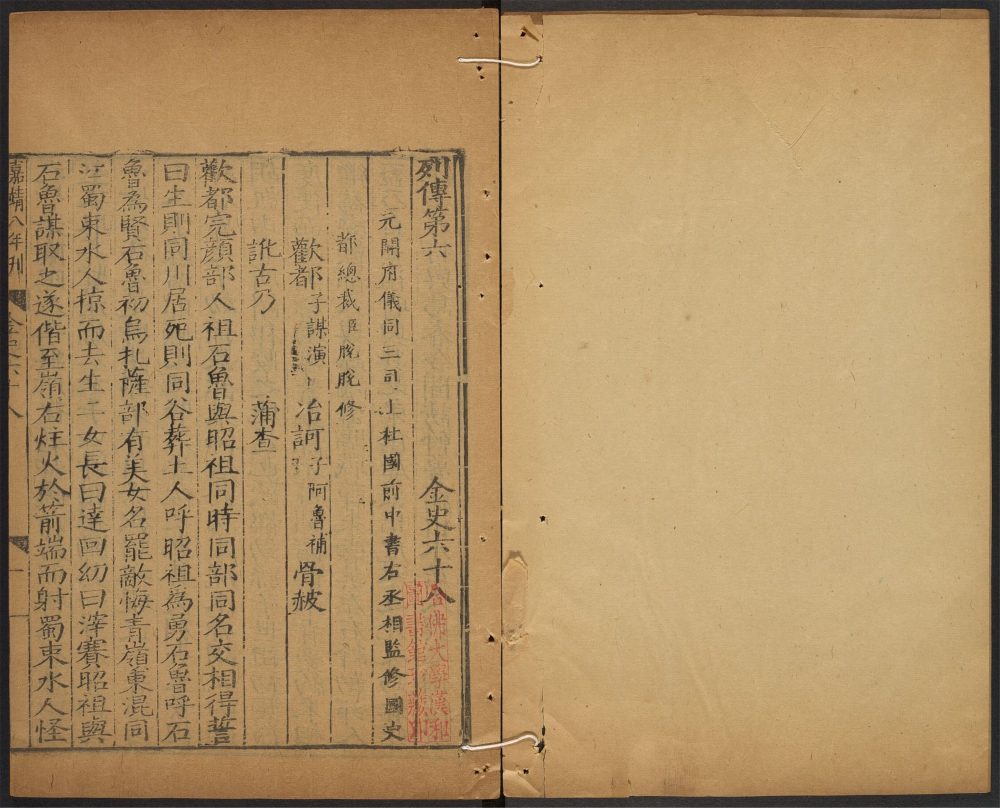 列傳第六 金史六十八
元開府儀同三司上柱國前中書右丞相監修國史
都總裁臣脫脫修
歡都 子謀演 冶訶 子阿魯補 骨赧
訛古乃 蒲查
歡都完顏部人祖石魯與昭祖同時同部同名交相得誓
曰生則同川居死則同谷葬土人呼昭祖為勇石魯呼石
魯為賢石魯初烏扎薩部有美女名罷敵悔青嶺東混同
江蜀束水人掠而去生二女長曰達回幼曰滓賽昭祖與
石魯謀取之遂偕至嶺右炷火於箭端而射蜀束水人怪
嘉靖八年刊 金史六十八 一
哈佛大學漢和
圖書館珍藏印